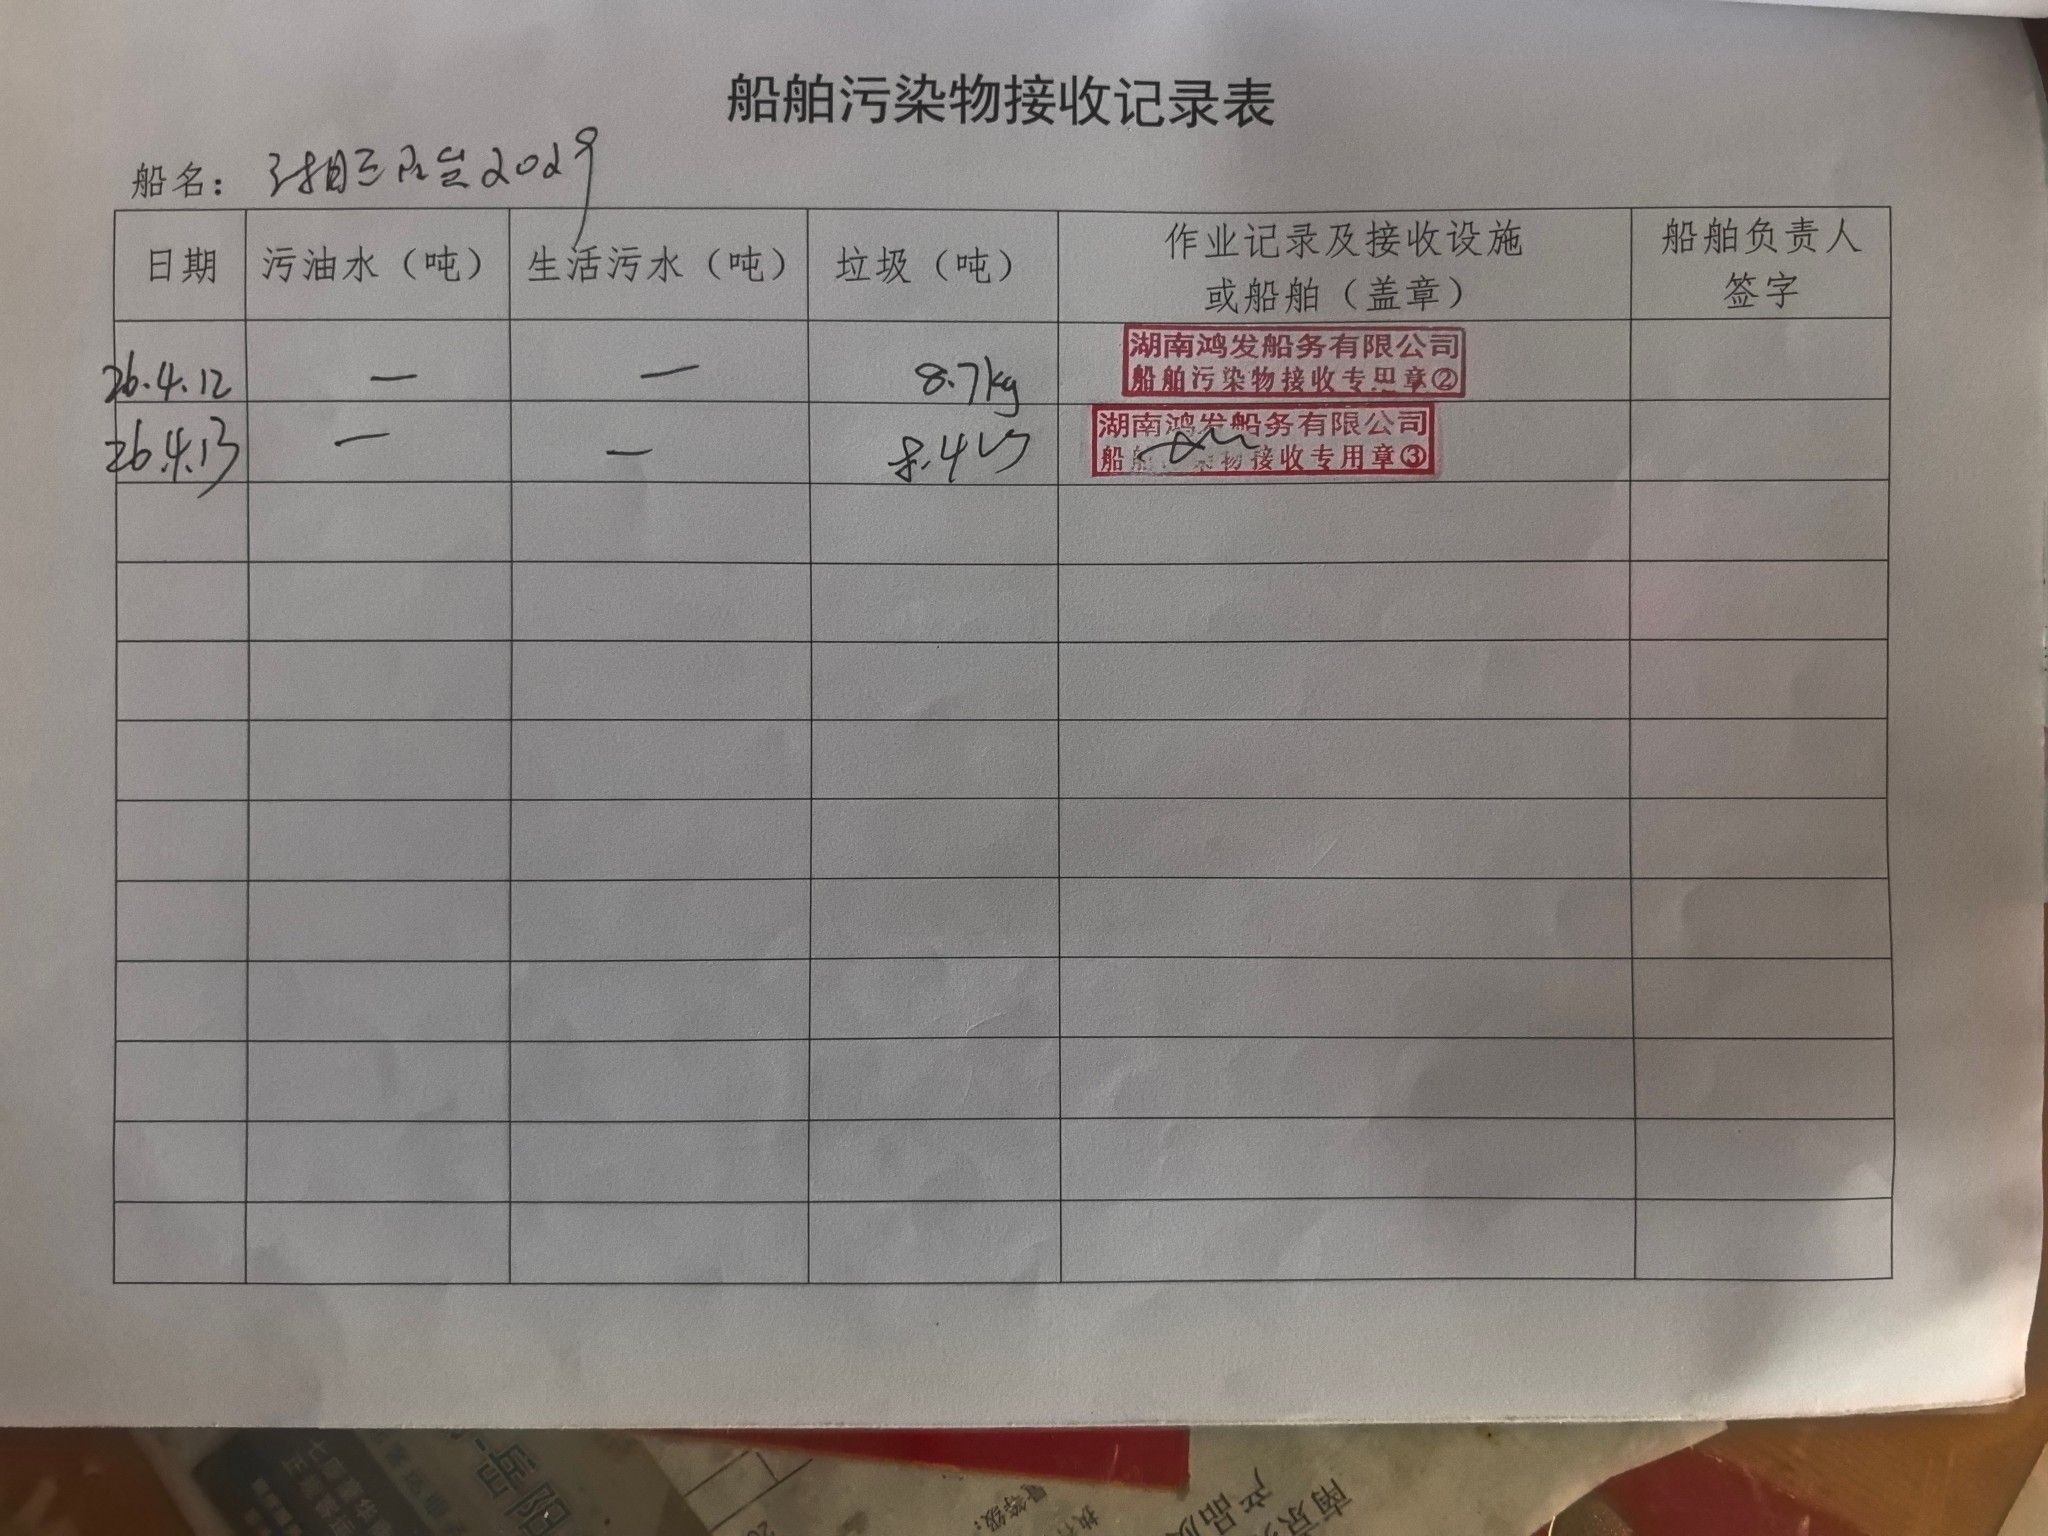 船舶污染物接收记录表
船名： 湘 2029
日期 污油水（吨） 生活污水（吨） 垃圾（吨） 作业记录及接收设施 船舶负责人
或船舶（盖章） 签字
26.4.12 — — 8.7kg 湖南鸿发船务有限公司
船舶污染物接收专用章②
26.4.13 — — 8.4 湖南鸿发船务有限公司
船舶污染物接收专用章③
岳阳
南京
产品